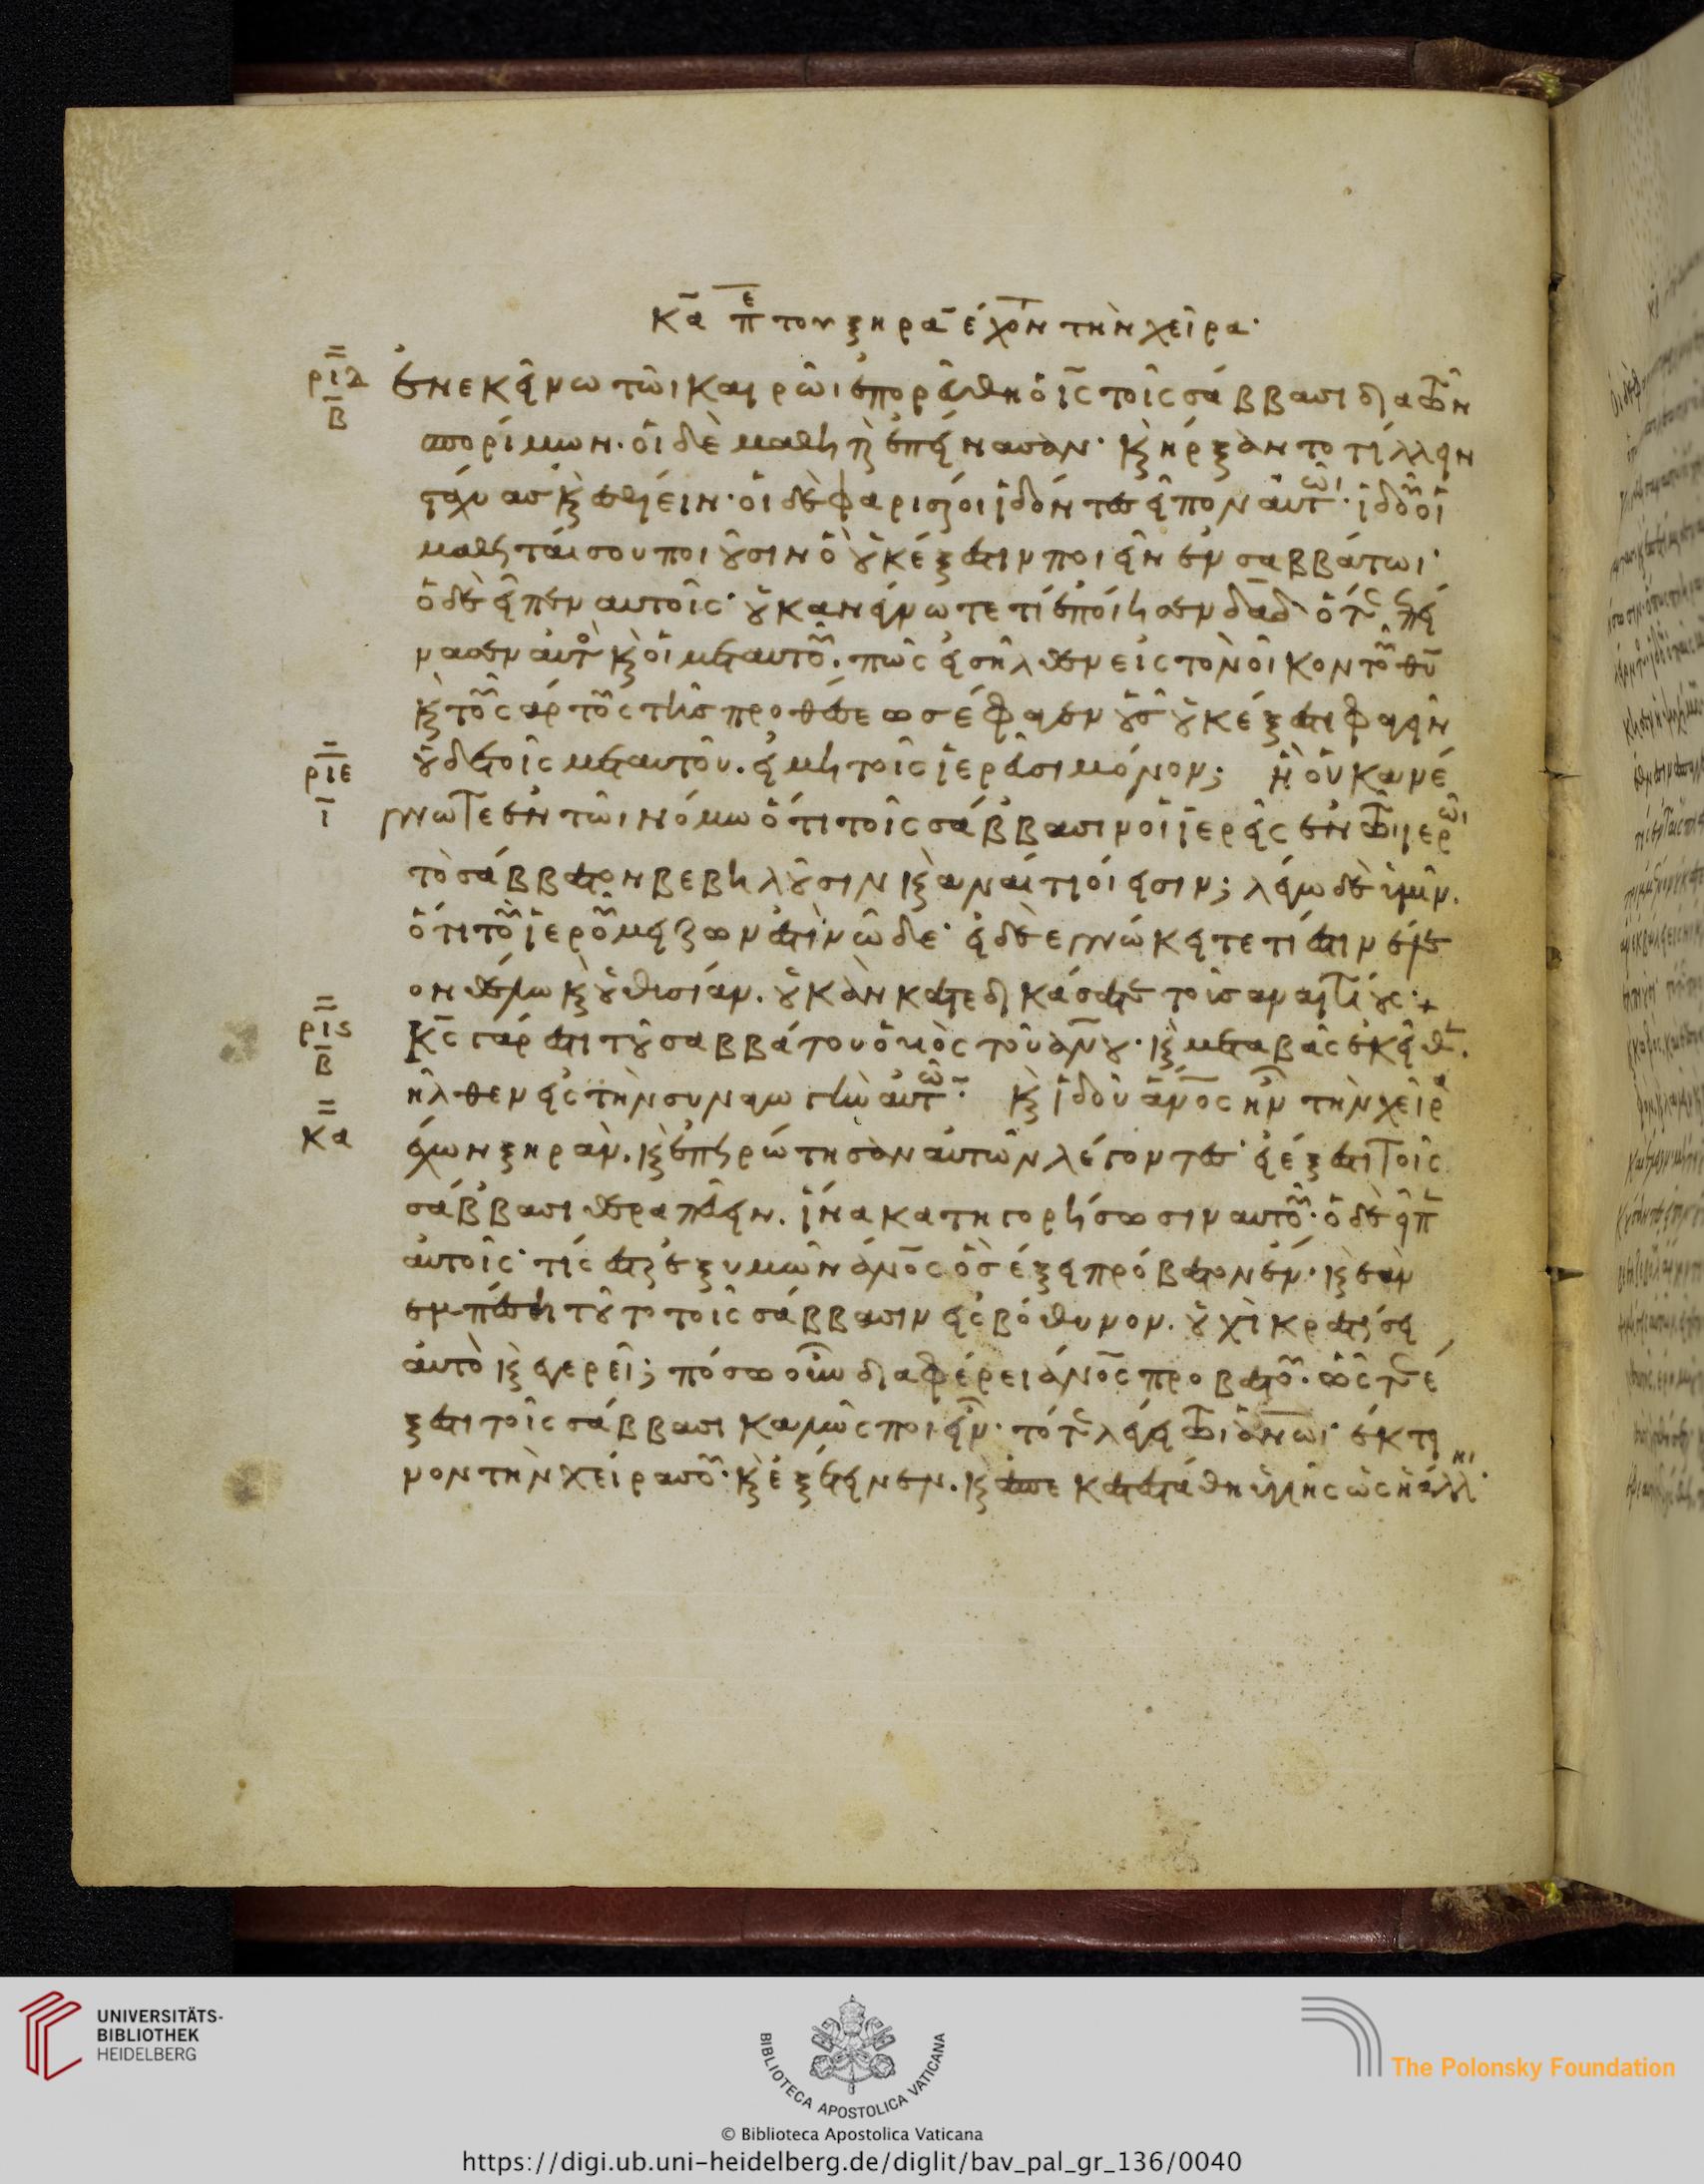 κα πε του ξηραν έχοντ την χείρα·
ριδ Ἐν εκείνω τῶι καιρῶι ἐπορεύθη ὁ ις τοῖς σάββασι δια τῶν
β σπορίμων· οἱ δὲ μαθηταὶ ἐπείνασαν· κὶ ήρξαντο τίλλειν
στάχυας κὶ ἐσθίειν· οἱ δὲ φαρισαῖοι ἰδόντες εἶπον αὐτῶι· ἰδοῦ οἱ
μαθηταί σου ποιοῦσιν ὃ οὐκ έξεστιν ποιεῖν ἐν σαββάτωι·
ὁ δὲ εἶπεν αυτοῖς· οὐκ ανέγνωτε τί ἐποίησεν δαδ ὅτε ἐπεί
νασεν αὐτὸς κὶ οἱ μετ αυτοῦ· πῶς εἰσῆλθεν εἰς τὸν οἶκον τοῦ θυ
κὶ τοῦς άρτους τῆς προθέσεως έφαγεν οὓς οὐκ έξεστι φαγεῖν
οὐδὲ τοῖς μετ αυτοῦ. εἰ μὴ τοῖς ἱερεῦσι μόνον; ἢ οὐκ ανέ
ριε
ι γνωτε ἐν τῶι νόμω ὅτι τοῖς σάββασιν οἱ ἱερεῖς ἐν τῶι ιερῶι
τὸ σάββατον βεβηλοῦσιν κὶ ἀναίτιοί εισιν; λέγω δὲ ὑμῖν.
ὅτι τοῦ ἱεροῦ μείζων ἐστὶν ῶδε· εἰ δὲ εγνώκειτε τί ἐστιν έλε
ον θέλω κὶ οὐ θυσίαν. οὐκ ὰν κατεδικάσατε τοὺς αναιτίους·+
ρις κς γάρ ἐστι τοῦ σαββάτου ὁ υιὸς τοῦ ανου· κὶ μεταβὰς ἐκεῖθεν.
β ηλθεν εἰς τὴν συναγωγὴν αὐτῶν· κὶ ἰδοὺ ἄνος ην τὴν χεῖρα
κα έχων ξηραν. κὶ ἐπηρώτησαν αὐτὸν λέγοντες· εἰ έξεστι τοῖς
σάββασι θεραπεύειν. ἵνα κατηγορήσωσιν αυτοῦ· ὁ δὲ εἶπ
αὐτοῖς· τίς ἐστὶ ἐξ υμῶν ἄνος ὃς έξει πρόβατον έν· κὶ ἐὰν
εμπέση τοῦτο τοῖς σάββασιν εἰς βόθυνον. οὐχὶ κρατήσει
αὐτὸ κὶ εγερεῖ; πόσω οὖν διαφέρει ἄνος προβάτου. ὥστε έ
ξεστι τοῖς σάββασι καλῶς ποιεῖν· τότε λέγει τῶι ανωι· έκτει
νον τὴν χείρα σου· κὶ ἐξέτεινεν. κὶ ἀπεκατεστάθη ὑγιὴς ὡς ἡ άλληι·
UNIVERSITÄTS-
BIBLIOTHEK
HEIDELBERG
BIBLIOTECA APOSTOLICA VATICANA
The Polonsky Foundation
© Biblioteca Apostolica Vaticana
https://digi.ub.uni-heidelberg.de/diglit/bav_pal_gr_136/0040